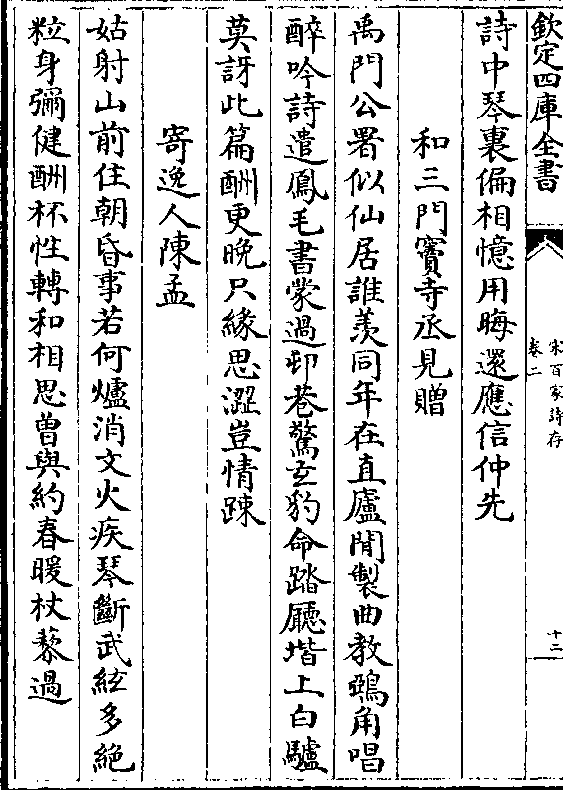 欽定四庫全書
宋百家詩存
卷二
十二
詩中琴裏偏相憶用晦還應信仲先
和三門竇寺丞見贈
禹門公署似仙居誰羨同年在直廬閒製曲教鵶角唱
醉吟詩遣鳳毛書蒙過卭巷驚玄豹命踏廳堦上白驢
莫訝此篇酬更晚只緣思澀豈情踈
寄逸人陳孟
姑射山前住朝昏事若何爐消文火疾琴斷武絃多絶
粒身彌健酬杯性轉和相思曽與約春暖杖藜過